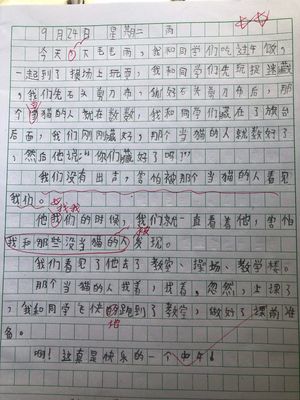 9月24日 星期二 雨
今天下毛毛雨,我和同学们吃过午饭,
一起到了操场上玩耍,我和同学们先玩捉迷藏
,我们先石头剪刀布,做好石头剪刀布后,那
个当猫的人就在数数,我和同学们藏在了旗台
后面,我们刚刚藏好,那个当猫的人就数好了
,然后他说:“你们藏好了吗?”
我们没有出去,害怕被那个当猫的人看见
我们。
他找我们的时候,我们就一直看着他,害怕
我和那些没当猫的人被发现。
我们看见了他去了教学、操场、教学楼。
那个当猫的人找着,找着,忽然,上课了
,我和同学飞快地跑到了教学,做好了课前准
备。
啊!这真是快乐的一个中午!